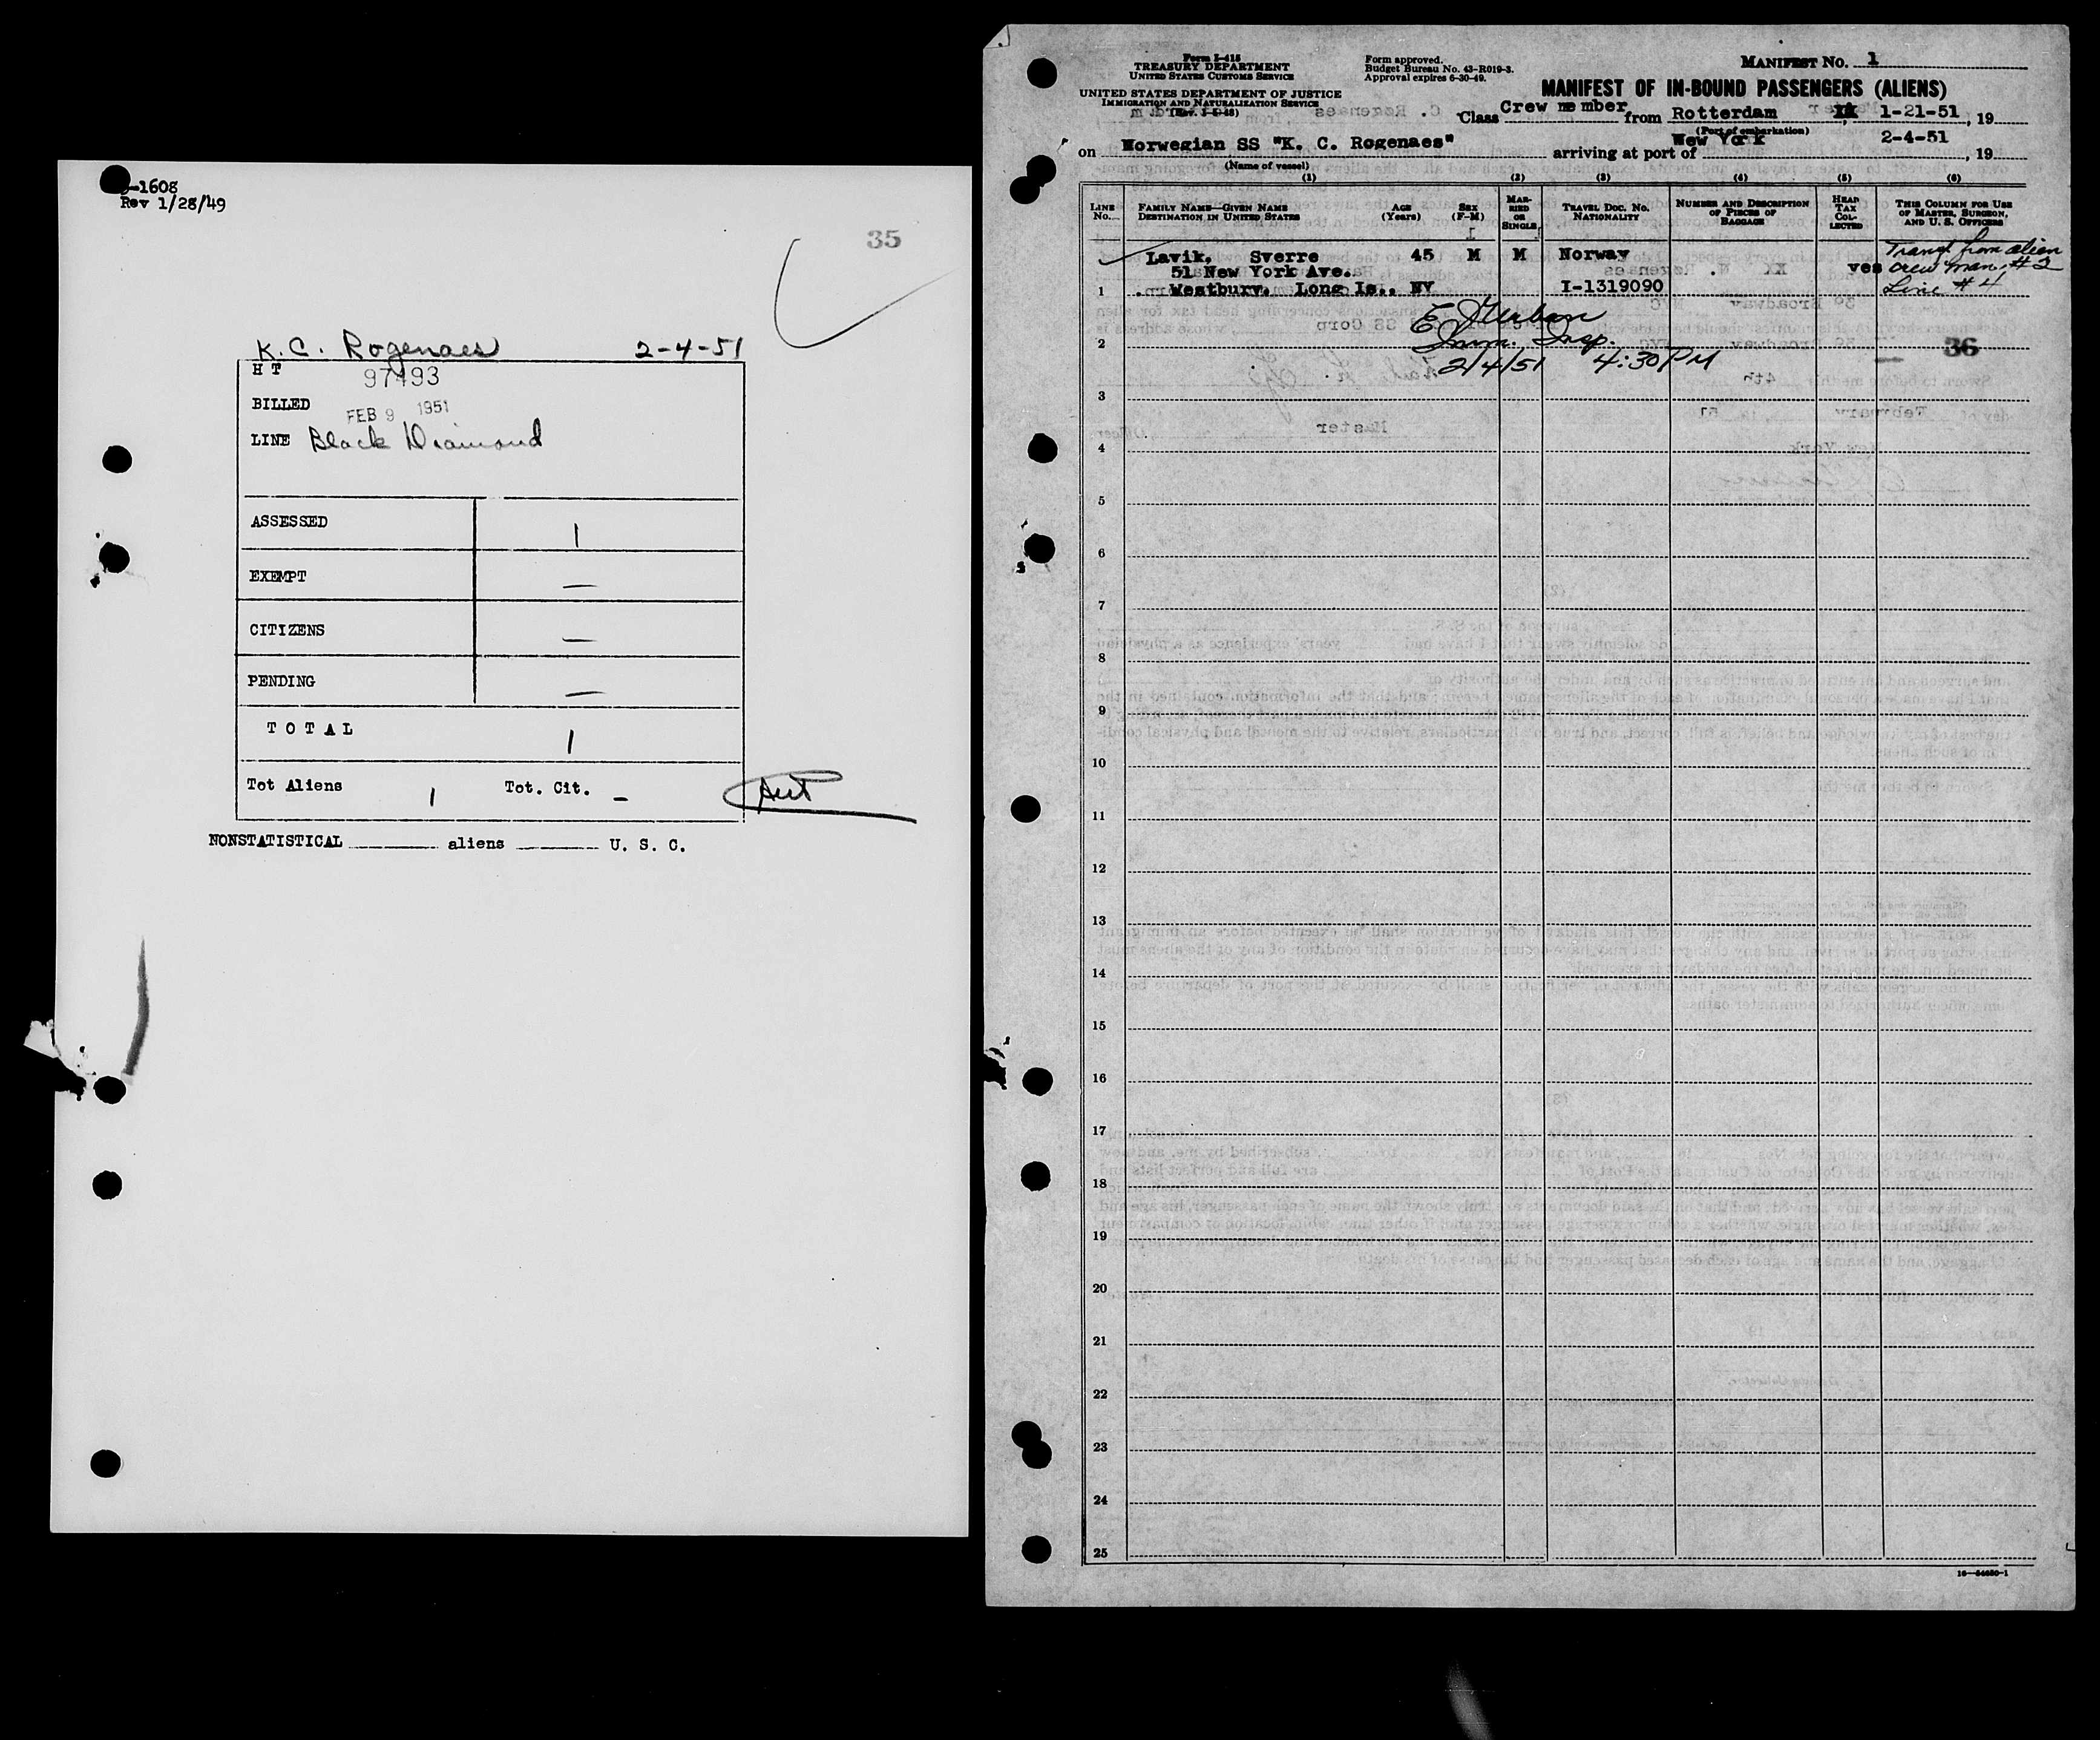 -1608
Rev 1/28/49
35
K.C. Rogenaes 2-4-51
HT 97493
BILLED FEB 9 1951
LINE Black Diamond
ASSESSED 1
EXEMPT —
CITIZENS —
PENDING —
TOTAL 1
Tot Aliens 1 Tot. Cit. -
NONSTATISTICAL aliens U. S. C.
Form I-415
TREASURY DEPARTMENT
UNITED STATES CUSTOMS SERVICE
UNITED STATES DEPARTMENT OF JUSTICE
IMMIGRATION AND NATURALIZATION SERVICE
Form approved.
Budget Bureau No. 43-R019-3.
Approval expires 6-30-49.
MANIFEST No. 1
MANIFEST OF IN-BOUND PASSENGERS (ALIENS)
Class Crew member from Rotterdam 1-21-51, 19
(Port of embarkation)
on Norwegian SS "K. C. Rogenaes" arriving at port of New York 2-4-51, 19
(Name of vessel)
(1) (2) (3) (4) (5) (6)
LINE No. FAMILY NAME—GIVEN NAME DESTINATION IN UNITED STATES AGE (Years) SEX (F-M) MARRIED OR SINGLE TRAVEL DOC. NO. NATIONALITY NUMBER AND DESCRIPTION OF PIECES OF BAGGAGE HEAD TAX COLLECTED THIS COLUMN FOR USE OF MASTER, SURGEON, AND U. S. OFFICERS
Lavik, Sverre 45 M M Norway Transf from alien
51 New York Ave. yes crew man. #2
1 Westbury, Long Is., NY I-1319090 Line #4
Imm. Insp.
2 36
2/4/51 4:30 PM
3
4
5
6
7
8
9
10
11
12
13
14
15
16
17
18
19
20
21
22
23
24
25
16—54650-1